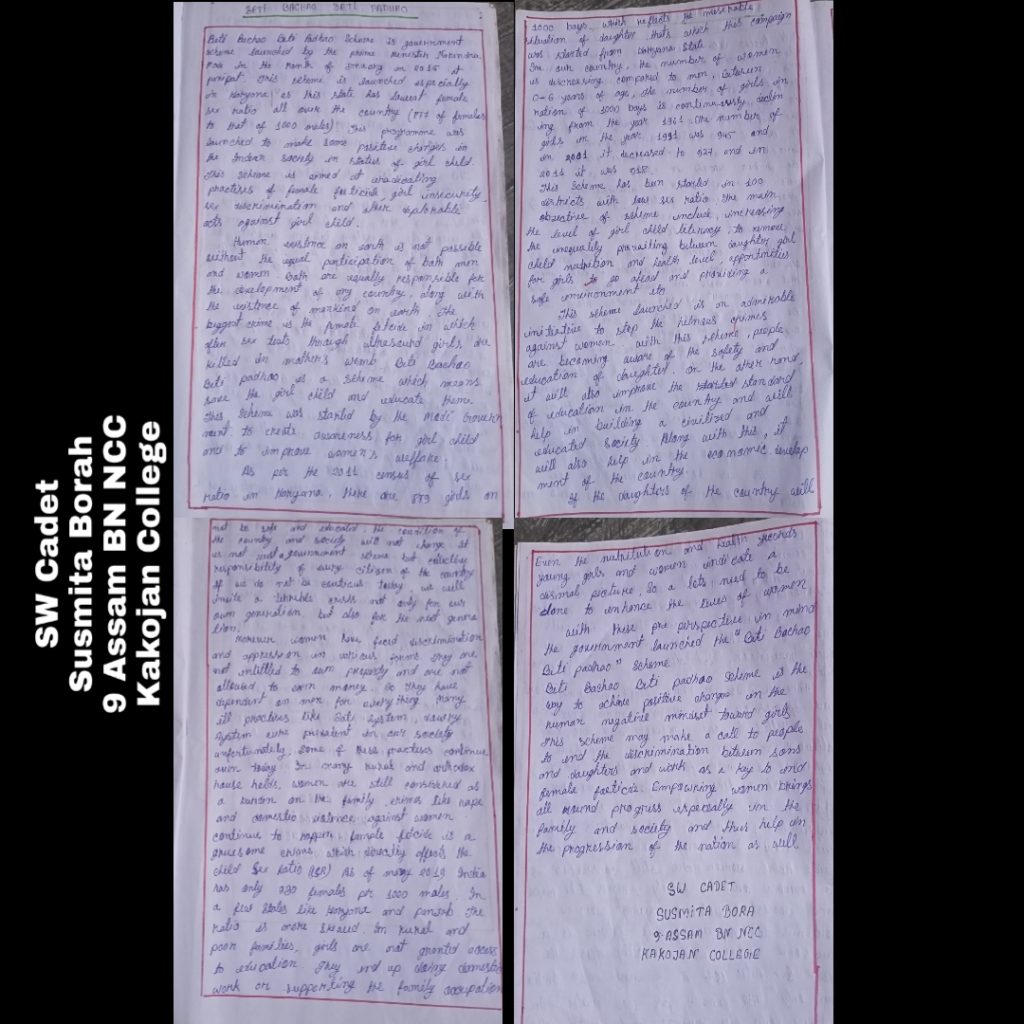 SW Cadet
Susmita Borah
9 Assam BN NCC
Kakojan College
BETI BACHAO BETI PADHAO
Beti Bachao Beti Padhao Scheme is government
scheme launched by the prime minister Narendra
in the month of in 2015 at
panipat. This scheme is launched especially
in Haryana as this state has female
sex ratio all over the country (of females
to that of 1000 males) This programme was
launched to make some positive changes in
the Indian society in status of girl child.
This scheme is aimed at eradicating
practises of female foeticide, girl insecurity,
sex discrimination and other deplorable
acts against girl child.
Human existence on earth is not possible
without the equal participation of both men
and women. both are equally responsible for
the development of any country, along with
the existence of mankind on earth. The
biggest crime is the female in which
after sex tests through ultrasound girls are
killed in mother's womb Beti Bachao
Beti padhao is a scheme which means
save the girl child and educate them.
This scheme was started by the Modi Govern
ment to create awareness for girl child
and to improve women's
As per the 2011 census of sex
ratio in Haryana, there are 879 girls on
1000 boys, which reflects the miserable
situation of daughter. that's which this campaign
was started from Haryana state
In our country, the number of women
is decreasing compared to men, between
0-6 years of age, the number of girls in
ration of 1000 boys is continuously declin
ing from the year 1961. The number of
girls in the year 1991 was 945 and
in 2001 it decreased to 927 and in
2011 it was 918.
This scheme has been started in 100
districts with low sex ratio. The main
objective of scheme include, increasing
the level of girl child literacy, to remove
the inequality between daughter, girl
child nutrition and health level, opportunities
for girls to go ahead and providing a
safe environment etc
This scheme launched is an admirable
initiative to stop the crimes
against women. with this scheme, people
are becoming aware of the safety and
education of daughter. On the other hand,
it will also improve the standard
of education in the country and will
help in building a civilized and
educated society. Along with this, it
will also help in the economic develop
ment of the country
If the daughters of the country will
not be safe and educated the condition of
the country and society will not change. It
is not just a government scheme but collective
responsibility of every citizen of the country
If we do not be today, we will
invite a terrible crisis not only for our
own generation but also for the next genera
tion.
women have faced discrimination
and oppression in various forms. They are
not entitled to own property and are not
allowed to earn money. So they have
dependent on men for everything. Many
ill practices like Sati System, dowry
System were prevalent in our society
unfortunately, some of these practises continue
even today. In many rural and orthodox
house holds, women are still considered as
a burden on the family crimes like rape
and domestic violence against women
continue to happen. female is a
gruesome crime which directly affects the
child Sex Ratio As of may 2019 India
has only 930 females per 1000 males. In
a few states like Haryana and panjab the
ratio is more skewed. In rural and
poor families, girls are not granted access
to education. They end up doing domestic
work or supporting the family occupation
Even the and health records
young girls and women indicate a
dismal picture, So a lots need to be
done to enhance the lives of women
with these pre perspective in mind
the government launched the "Beti Bachao
Beti padhao" scheme.
Beti Bachao Beti padhao scheme is the
way to achieve positive changes in the
human negative mindset toward girls
This scheme may make a call to people
to end the discrimination between sons
and daughters and work as a key to end
female foeticide. Empowering women brings
all round progress especially in the
family and society and thus help in
the progression of the nation as well
SW CADET
SUSMITA BORA
9-ASSAM BN NCC
KAKOJAN COLLEGE